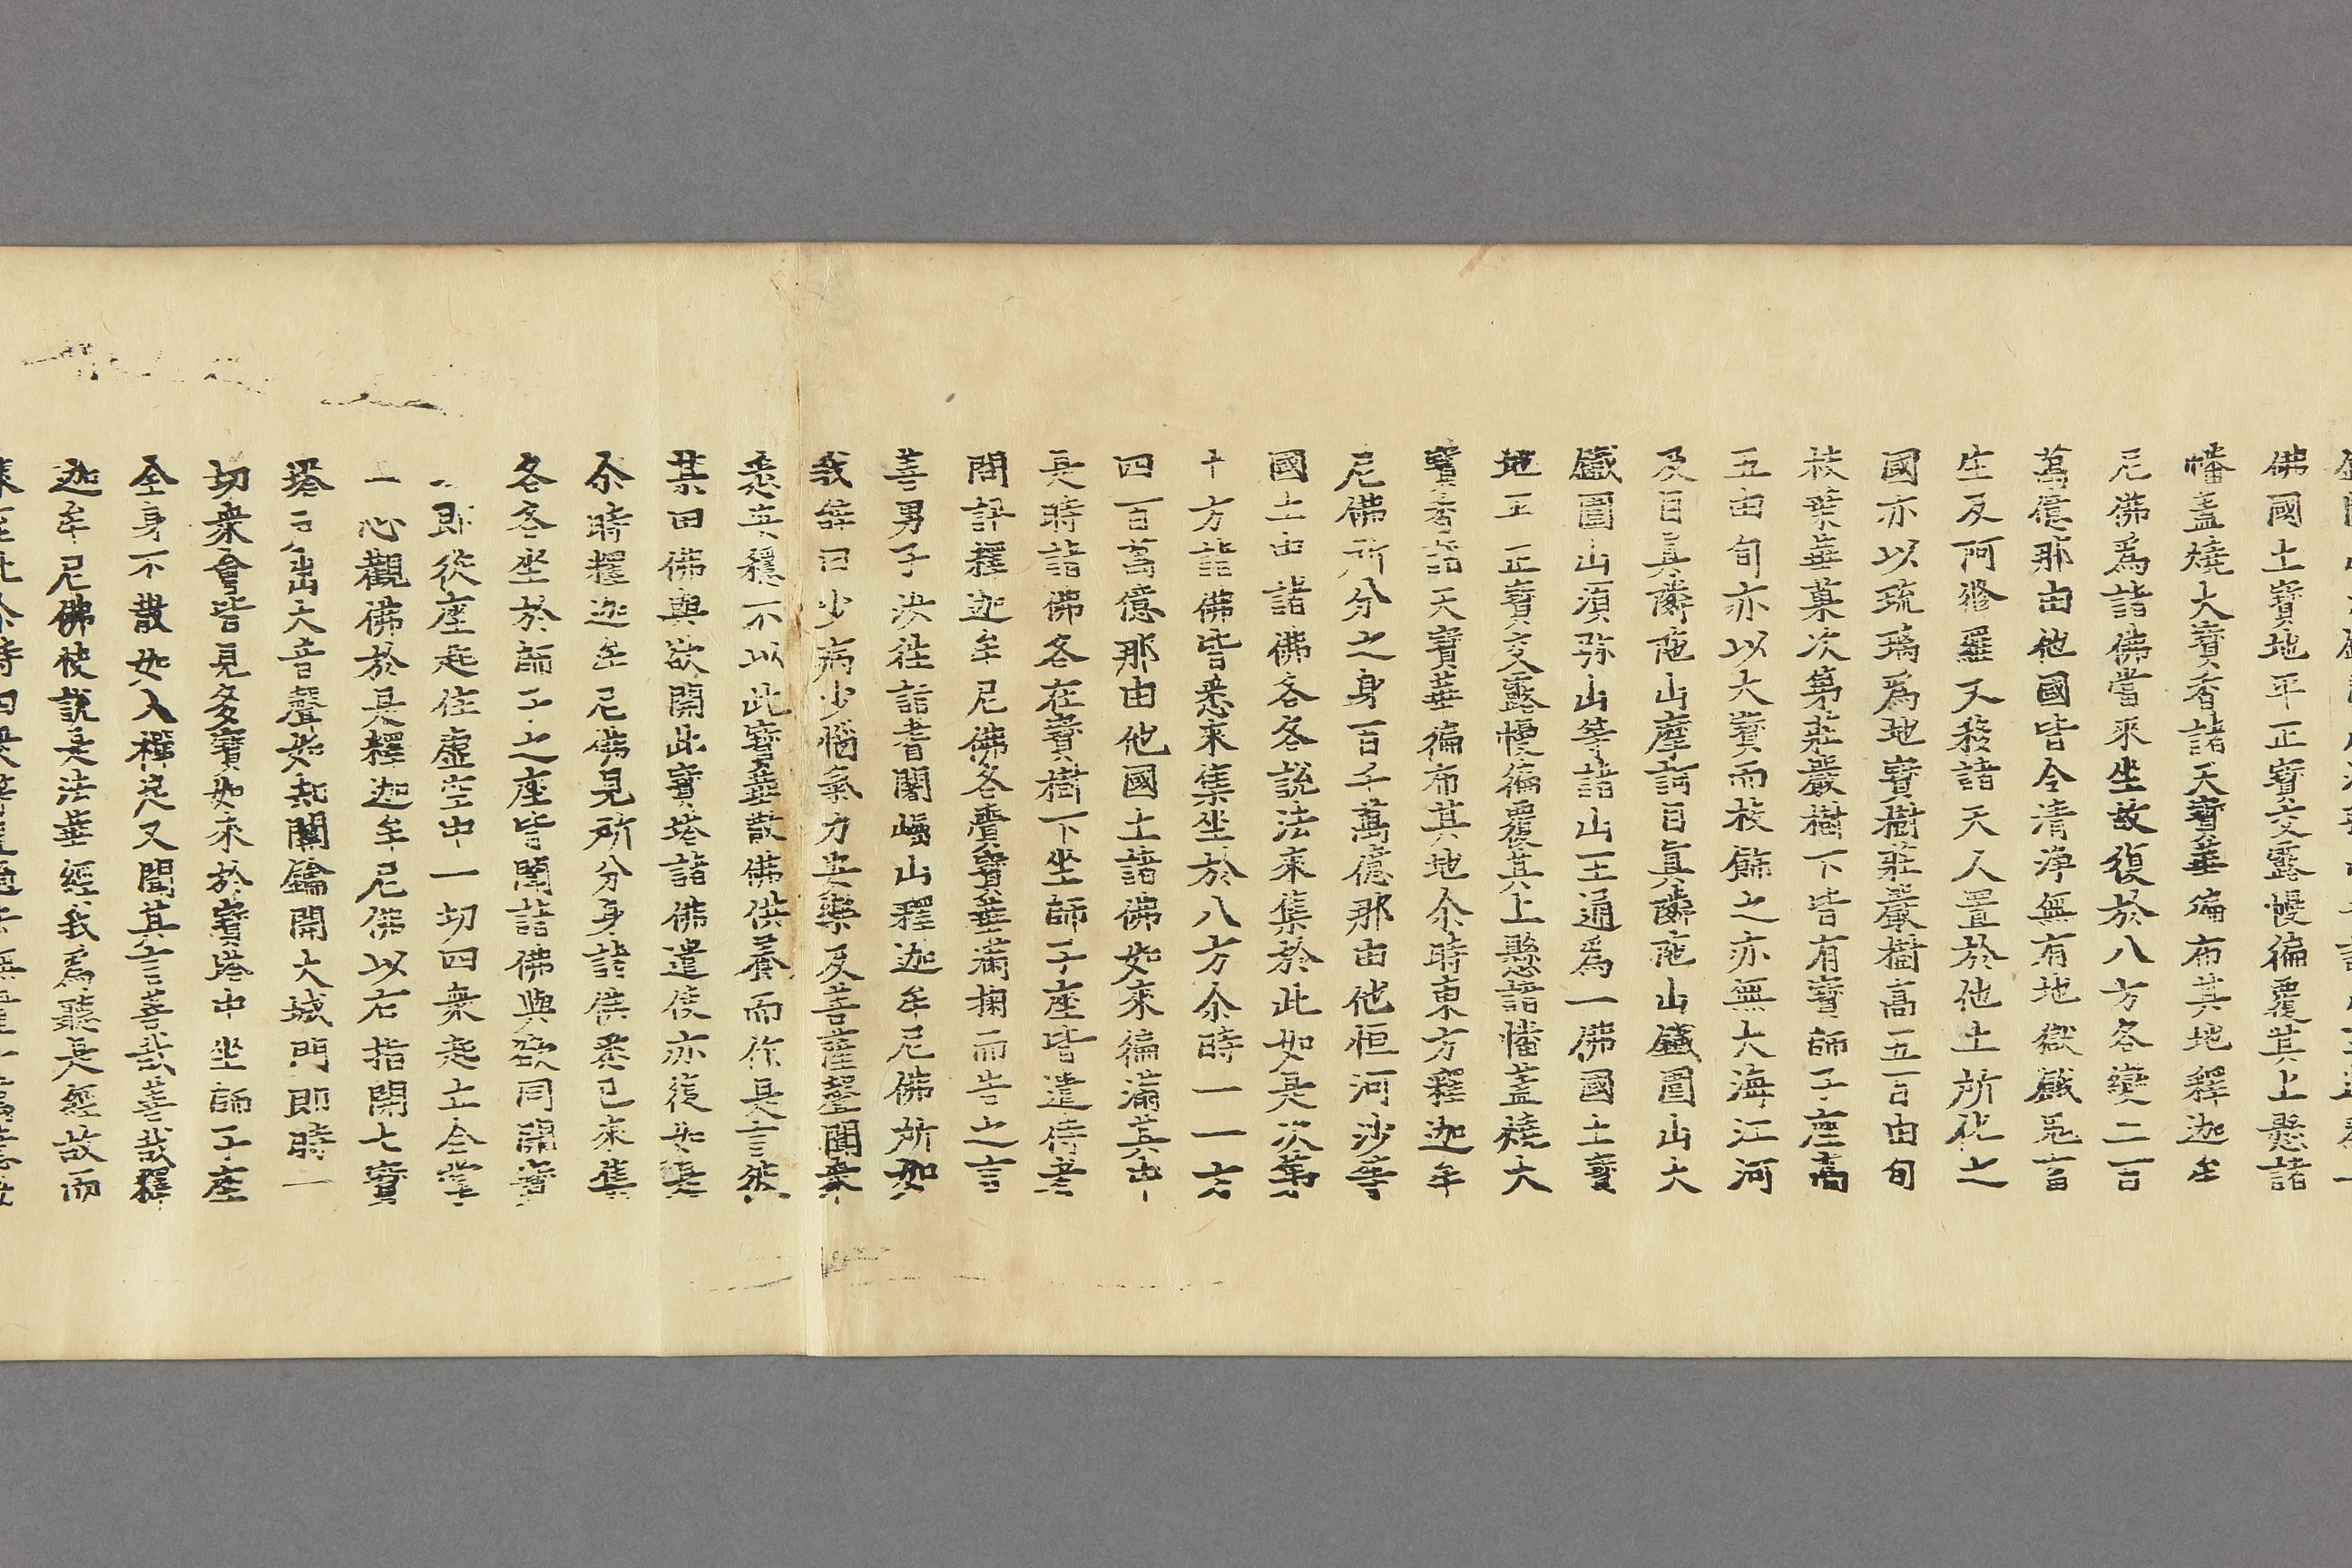 佛國土寶地平正寶交露幔徧覆其上懸諸
幡盖燒大寶香諸天寶華徧布其地釋迦牟
尼佛爲諸佛當來坐故復於八方各變二百
萬億那由他國皆令清淨無有地獄餓鬼畜
生及阿修羅又移諸天人置於他土所化之
國亦以琉璃爲地寶樹莊嚴樹高五百由旬
枝葉華菓次第莊嚴樹下皆有寶師子座高
五由旬亦以大寶而挍餝之亦無大海江河
及目真隣陁山摩訶目真隣陁山鐵圍山大
鐵圍山須弥山等諸山王通爲一佛國土寶
地平正寶交露幔徧覆其上懸諸幡盖燒大
寶香諸天寶華徧布其地尒時東方釋迦牟
尼佛所分之身百千萬億那由他恒河沙等
國土中諸佛各各說法來集於此如是次第
十方諸佛皆悉來集坐於八方尒時一一方
四百萬億那由他國土諸佛如來徧滿其中
是時諸佛各在寶樹下坐師子座皆遣侍者
問訊釋迦牟尼佛各賷寶華滿掬而告之言
善男子汝往詣耆闍崛山釋迦牟尼佛所如
我辞曰少病少惱氣力安樂及菩薩聲聞衆
悉安穩不以此寶華散佛供養而作是言彼
某甲佛與欲開此寶塔諸佛遣使亦復如是
尒時釋迦牟尼佛見所分身諸佛悉已來集
各各坐於師子之座皆聞諸佛與欲同開寶
即從座起住虛空中一切四衆起立合掌
一心觀佛於是釋迦牟尼佛以右指開七寶
塔户出大音聲如却關鑰開大城門即時一
切衆會皆見多寶如來於寶塔中坐師子座
全身不散如入禪定又聞其言善哉善哉釋
迦牟尼佛快說是法華經我爲聽是經故而